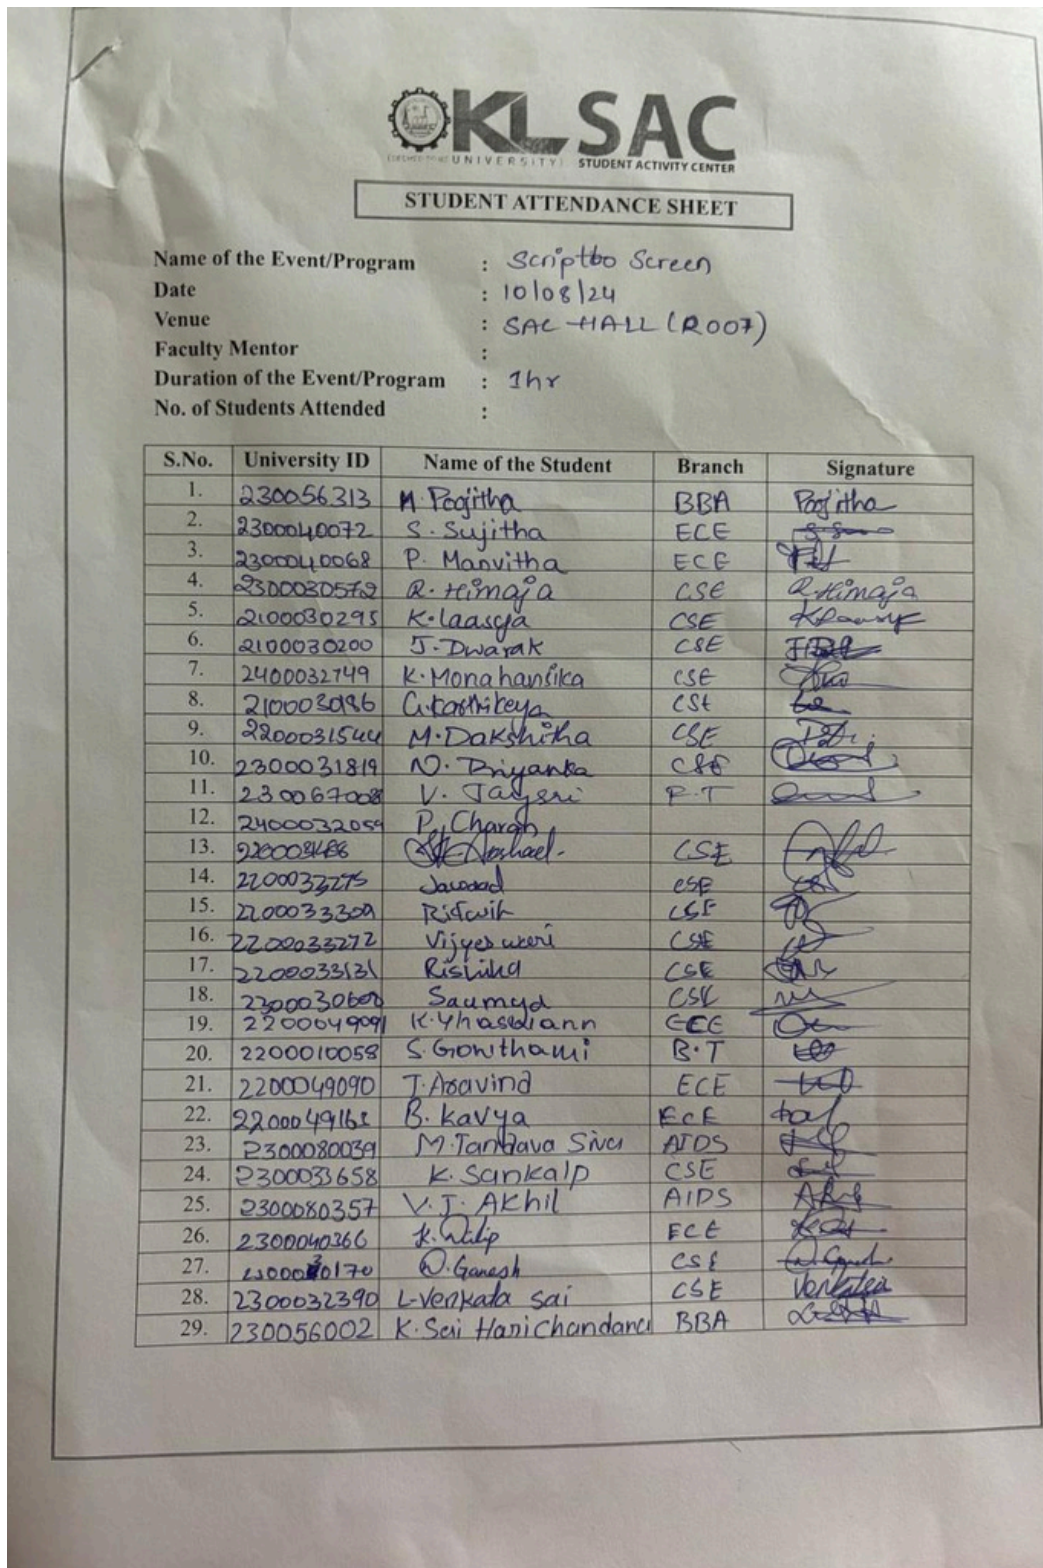 KL SAC
(DEEMED TO BE UNIVERSITY) STUDENT ACTIVITY CENTER
STUDENT ATTENDANCE SHEET
Name of the Event/Program : Scriptto Screen
Date : 10/08/24
Venue : SAC HALL (R007)
Faculty Mentor :
Duration of the Event/Program : 1hr
No. of Students Attended :
S.No. University ID Name of the Student Branch Signature
1. 230056313 M. Poojitha BBA Poojitha
2. 2300040072 S. Sujitha ECE
3. 2300040068 P. Manvitha ECE
4. 2300030572 R. Himaja CSE R. Himaja
5. 2100030295 K. laasya CSE
6. 2100030200 J. Dwarak CSE
7. 2400032749 K. Monahansika CSE
8. G. karthikeya CSE
9. 2200031544 M. Dakshitha CSE
10. 2300031819 N. Priyanka CSE
11. 230067008 V. Jaysri P.T
12. 2400032059 P. Charan
13. CSE
14. 2200032275 CSE
15. 2200033309 Ridwik CSE
16. 2200033272 Vijyeswari CSE
17. 2200033131 Rishika CSE
18. Saumya CSE
19. 2200049091 ECE
20. 2200010058 S. Gowthami B.T
21. 2200049090 T. Aravind ECE
22. B. Kavya ECE
23. 2300080039 M. Tandava Siva AIDS
24. 2300033658 K. Sankalp CSE
25. 2300080357 V. J. Akhil AIDS
26. 2300040366 K. Dilip ECE
27. Ganesh CSE
28. 2300032390 L. Venkata Sai CSE
29. 230056002 K. Sai Hari Chandana BBA